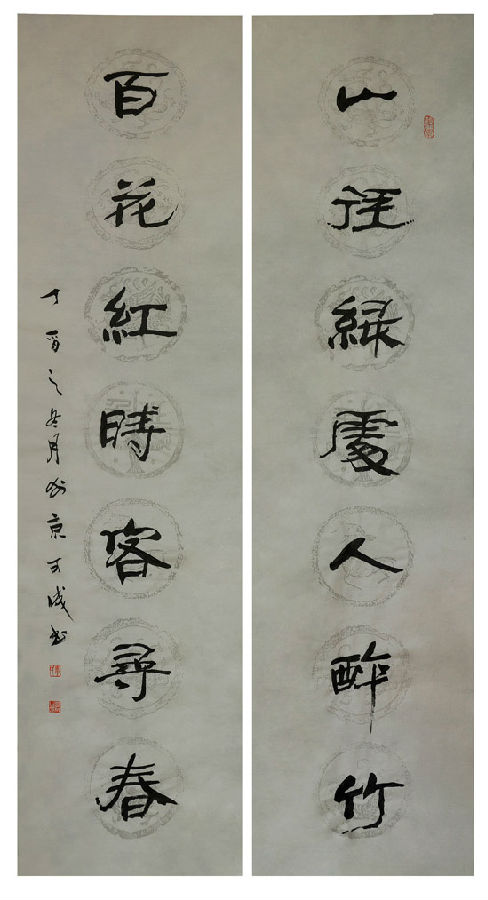 山径緑處人醉竹
百花紅時客尋春
丁酉之冬月於京可成书